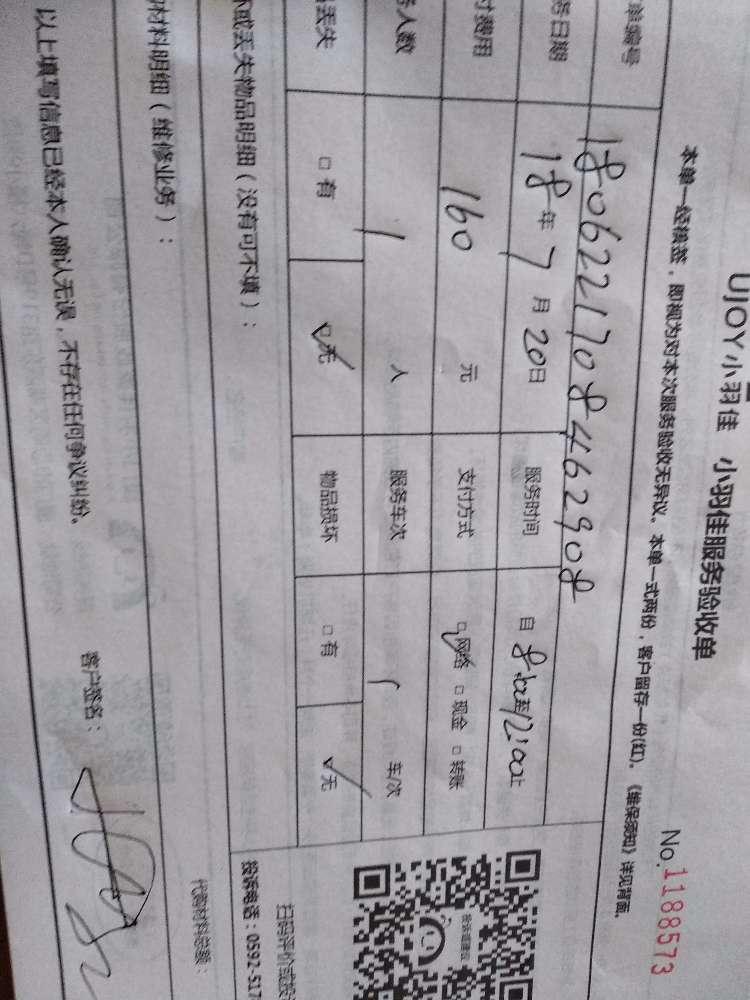 UJOY小羽佳 小羽佳服务验收单
No.1188573
本单一经核签，即视为对本次服务验收无异议。本单一式两份，客户留存一份(红)。《维保须知》详见背面。
单编号 1806221708462908
务日期 18年7月20日 服务时间 自8:00至12:00止
付费用 160元 支付方式 ☑网络 □现金 □转账
务人数 1人 服务车次 1车/次
丢失 □有 ☑无 物品损坏 □有 ☑无
坏或丢失物品明细（没有可不填）：
扫码评价或投
投诉电话：0592-517
材料明细（维修业务）：
代购材料总额：
以上填写信息已经本人确认无误，不存在任何争议纠纷。
客户签名：